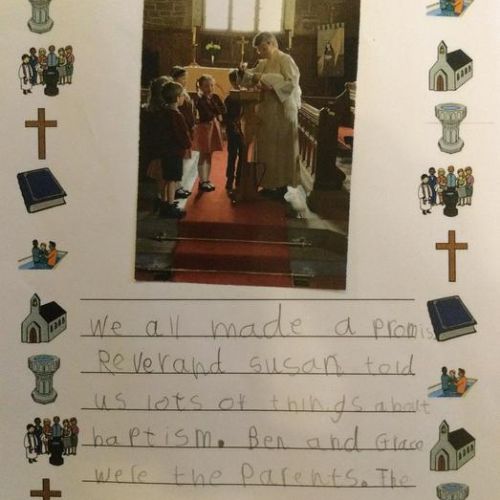 We all made a promis
Reverand susan told
us lots of things about
baptism. Ben and Grace
were the Parents. The